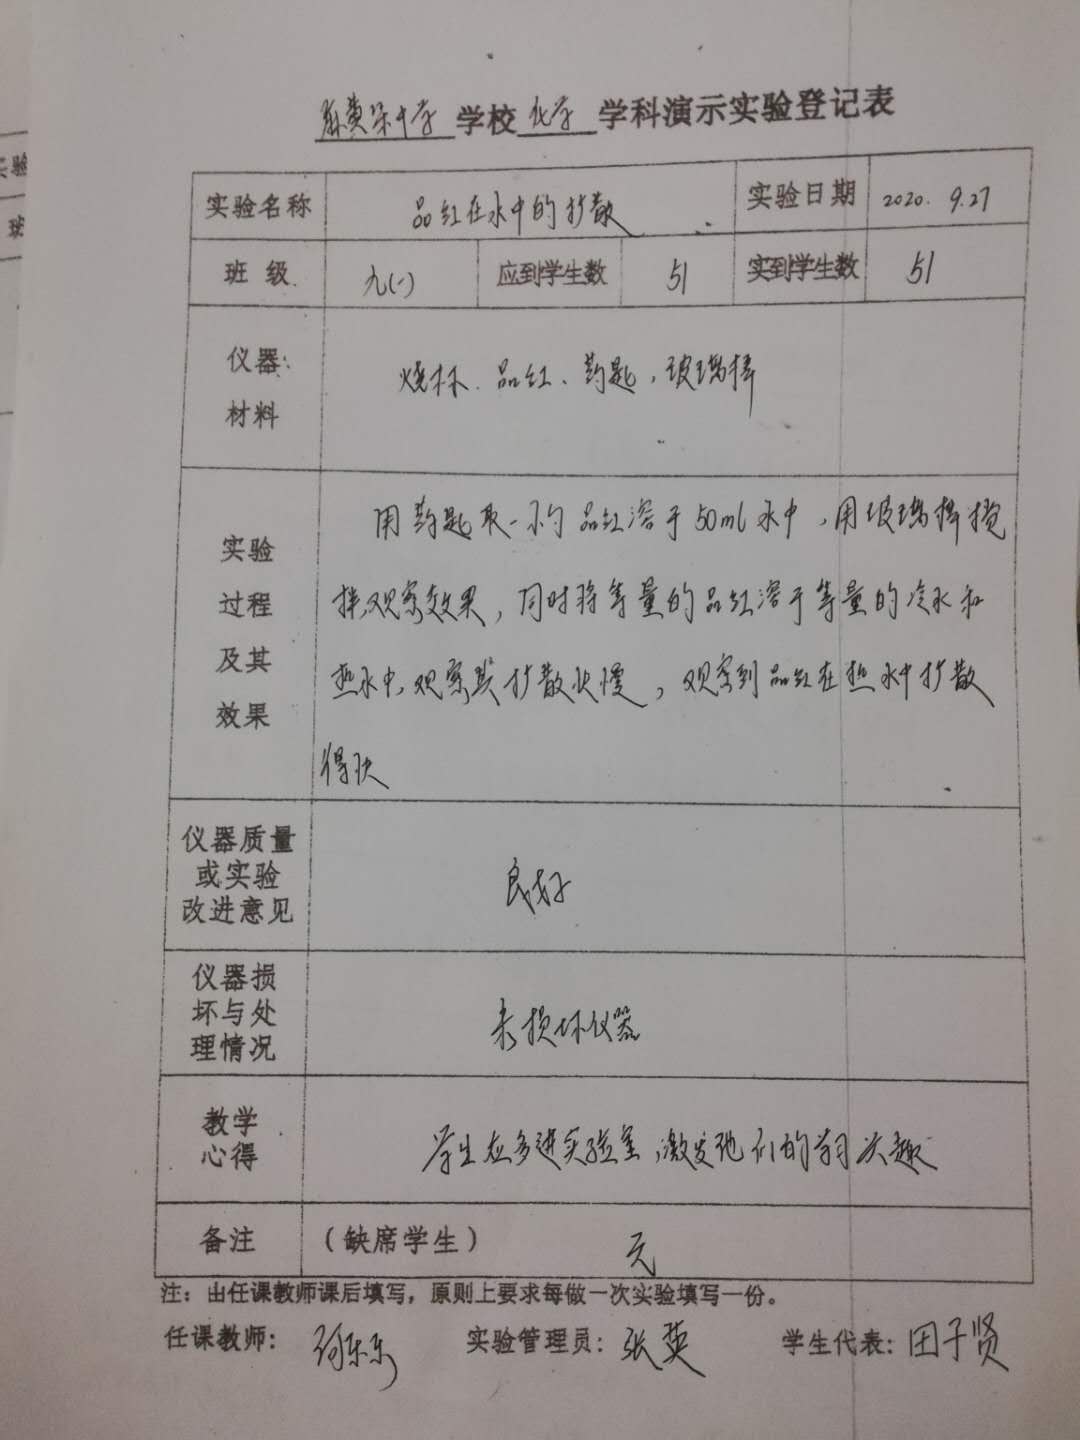 麻黄梁中学 学校 化学 学科演示实验登记表
实验名称 品红在水中的扩散 实验日期 2020. 9.27
班 级 九(一) 应到学生数 51 实到学生数 51
仪器:
材料
烧杯、品红、药匙,玻璃棒
实验
过程
及其
效果
用药匙取一小勺品红溶于50ml水中,用玻璃棒搅
拌,观察效果,同时将等量的品红溶于等量的冷水和
热水中,观察其扩散快慢,观察到品红在热水中扩散
得快
仪器质量
或实验
改进意见
良好
仪器损
坏与处
理情况
未损坏仪器
教学
心得
学生应多进实验室,激发他们的学习兴趣
备注 (缺席学生) 无
注:由任课教师课后填写,原则上要求每做一次实验填写一份。
任课教师: 实验管理员: 张英 学生代表: 田子贤
实验
班